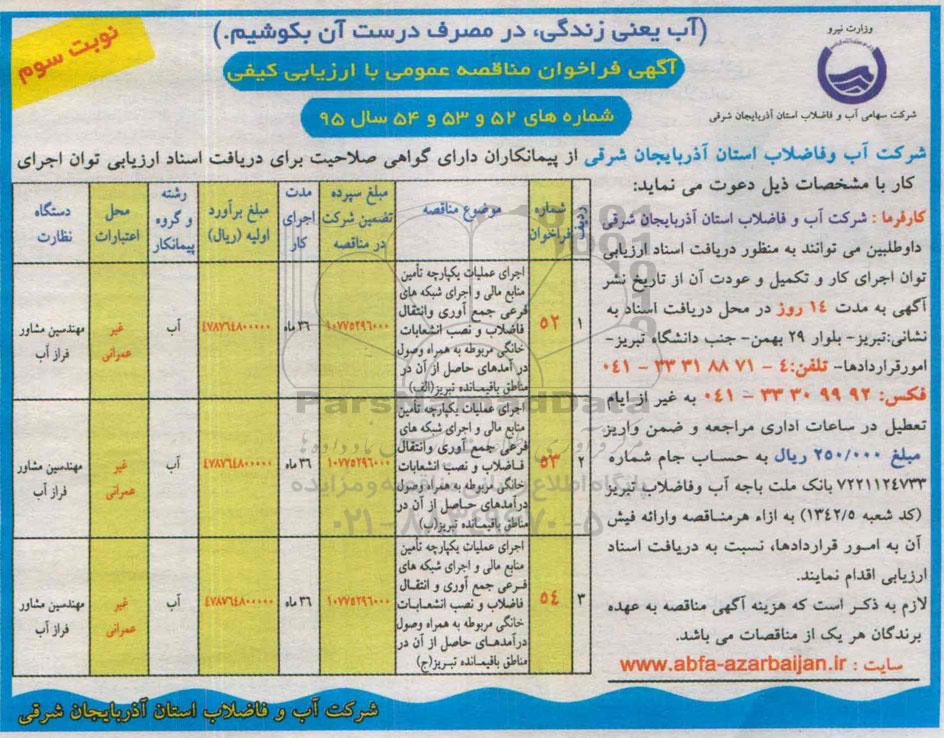 وزارت نیرو
شرکت سهامی آب و فاضلاب استان آذربایجان شرقی
نوبت سوم
(آب یعنی زندگی، در مصرف درست آن بکوشیم.)
آگهی فراخوان مناقصه عمومی با ارزیابی کیفی
شماره های ۵۲ و ۵۳ و ۵۴ سال ۹۵
شرکت آب وفاضلاب استان آذربایجان شرقی از پیمانکاران دارای گواهی صلاحیت برای دریافت اسناد ارزیابی توان اجرای
کار با مشخصات ذیل دعوت می نماید:
کارفرما : شرکت آب و فاضلاب استان آذربایجان شرقی
داوطلبین می توانند به منظور دریافت اسناد ارزیابی
توان اجرای کار و تکمیل و عودت آن از تاریخ نشر
آگهی به مدت ۱۴ روز در محل دریافت اسناد به
نشانی:تبریز- بلوار ۲۹ بهمن- جنب دانشگاه تبریز-
امورقراردادها- تلفن:۴ - ۷۱ ۸۸ ۳۱ ۳۳ - ۰۴۱
فکس: ۹۲ ۹۹ ۳۰ ۳۳ - ۰۴۱ به غیر از ایام
تعطیل در ساعات اداری مراجعه و ضمن واریز
مبلغ ۲۵۰/۰۰۰ ریال به حساب جام شماره
۷۲۲۱۱۲۴۷۳۳ بانک ملت باجه آب وفاضلاب تبریز
(کد شعبه ۱۳۴۲/۵) به ازاء هرمناقصه وارائه فیش
آن به امور قراردادها، نسبت به دریافت اسناد
ارزیابی اقدام نمایند.
لازم به ذکر است که هزینه آگهی مناقصه به عهده
برندگان هر یک از مناقصات می باشد.
سایت : www.abfa-azarbaijan.ir
ردیف | شماره فراخوان | موضوع مناقصه | مبلغ سپرده تضمین شرکت در مناقصه | مدت اجرای کار | مبلغ برآورد اولیه (ریال) | رشته و گروه پیمانکار | محل اعتبارات | دستگاه نظارت
۱ | ۵۲ | ۱۰۷۷۵۲۹۶۰۰۰ | ۳۶ ماه | ۴۷۸۷۶۴۸۰۰۰۰۰ | آب | غیر عمرانی | مهندسین مشاور فراز آب
اجرای عملیات یکپارچه تأمین
منابع مالی و اجرای شبکه های
فرعی جمع آوری وانتقال
فاضلاب و نصب انشعابات
خانگی مربوطه به همراه وصول
درآمدهای حاصل از آن در
مناطق باقیمانده تبریز(الف)
۲ | ۵۳ | ۱۰۷۷۵۲۹۶۰۰۰ | ۳۶ ماه | ۴۷۸۷۶۴۸۰۰۰۰۰ | آب | غیر عمرانی | مهندسین مشاور فراز آب
اجرای عملیات یکپارچه تأمین
منابع مالی و اجرای شبکه های
فرعی جمع آوری وانتقال
فاضلاب و نصب انشعابات
خانگی مربوطه به همراه وصول
درآمدهای حاصل از آن در
مناطق باقیمانده تبریز(ب)
۳ | ۵۴ | ۱۰۷۷۵۲۹۶۰۰۰ | ۳۶ ماه | ۴۷۸۷۶۴۸۰۰۰۰۰ | آب | غیر عمرانی | مهندسین مشاور فراز آب
اجرای عملیات یکپارچه تأمین
منابع مالی و اجرای شبکه های
فرعی جمع آوری و انتقال
فاضلاب و نصب انشعابات
خانگی مربوطه به همراه وصول
درآمدهای حاصل از آن در
مناطق باقیمانده تبریز(ج)
شرکت آب و فاضلاب استان آذربایجان شرقی
ParsNamadData
پایگاه اطلاع رسانی مناقصه و مزایده
۰۲۱-۸۸۳۴۹۶۷۰-۵